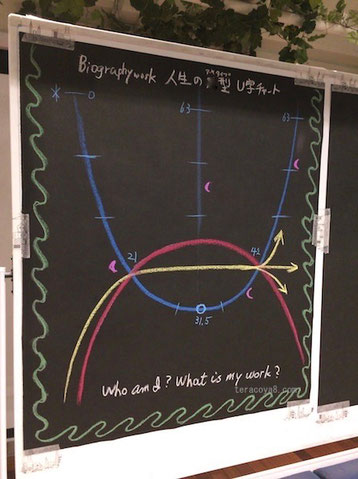 Biographywork 人生の 型 U字チャート
0
63
63
21
42
31.5
Who am I? What is my work?
teracoya8.com